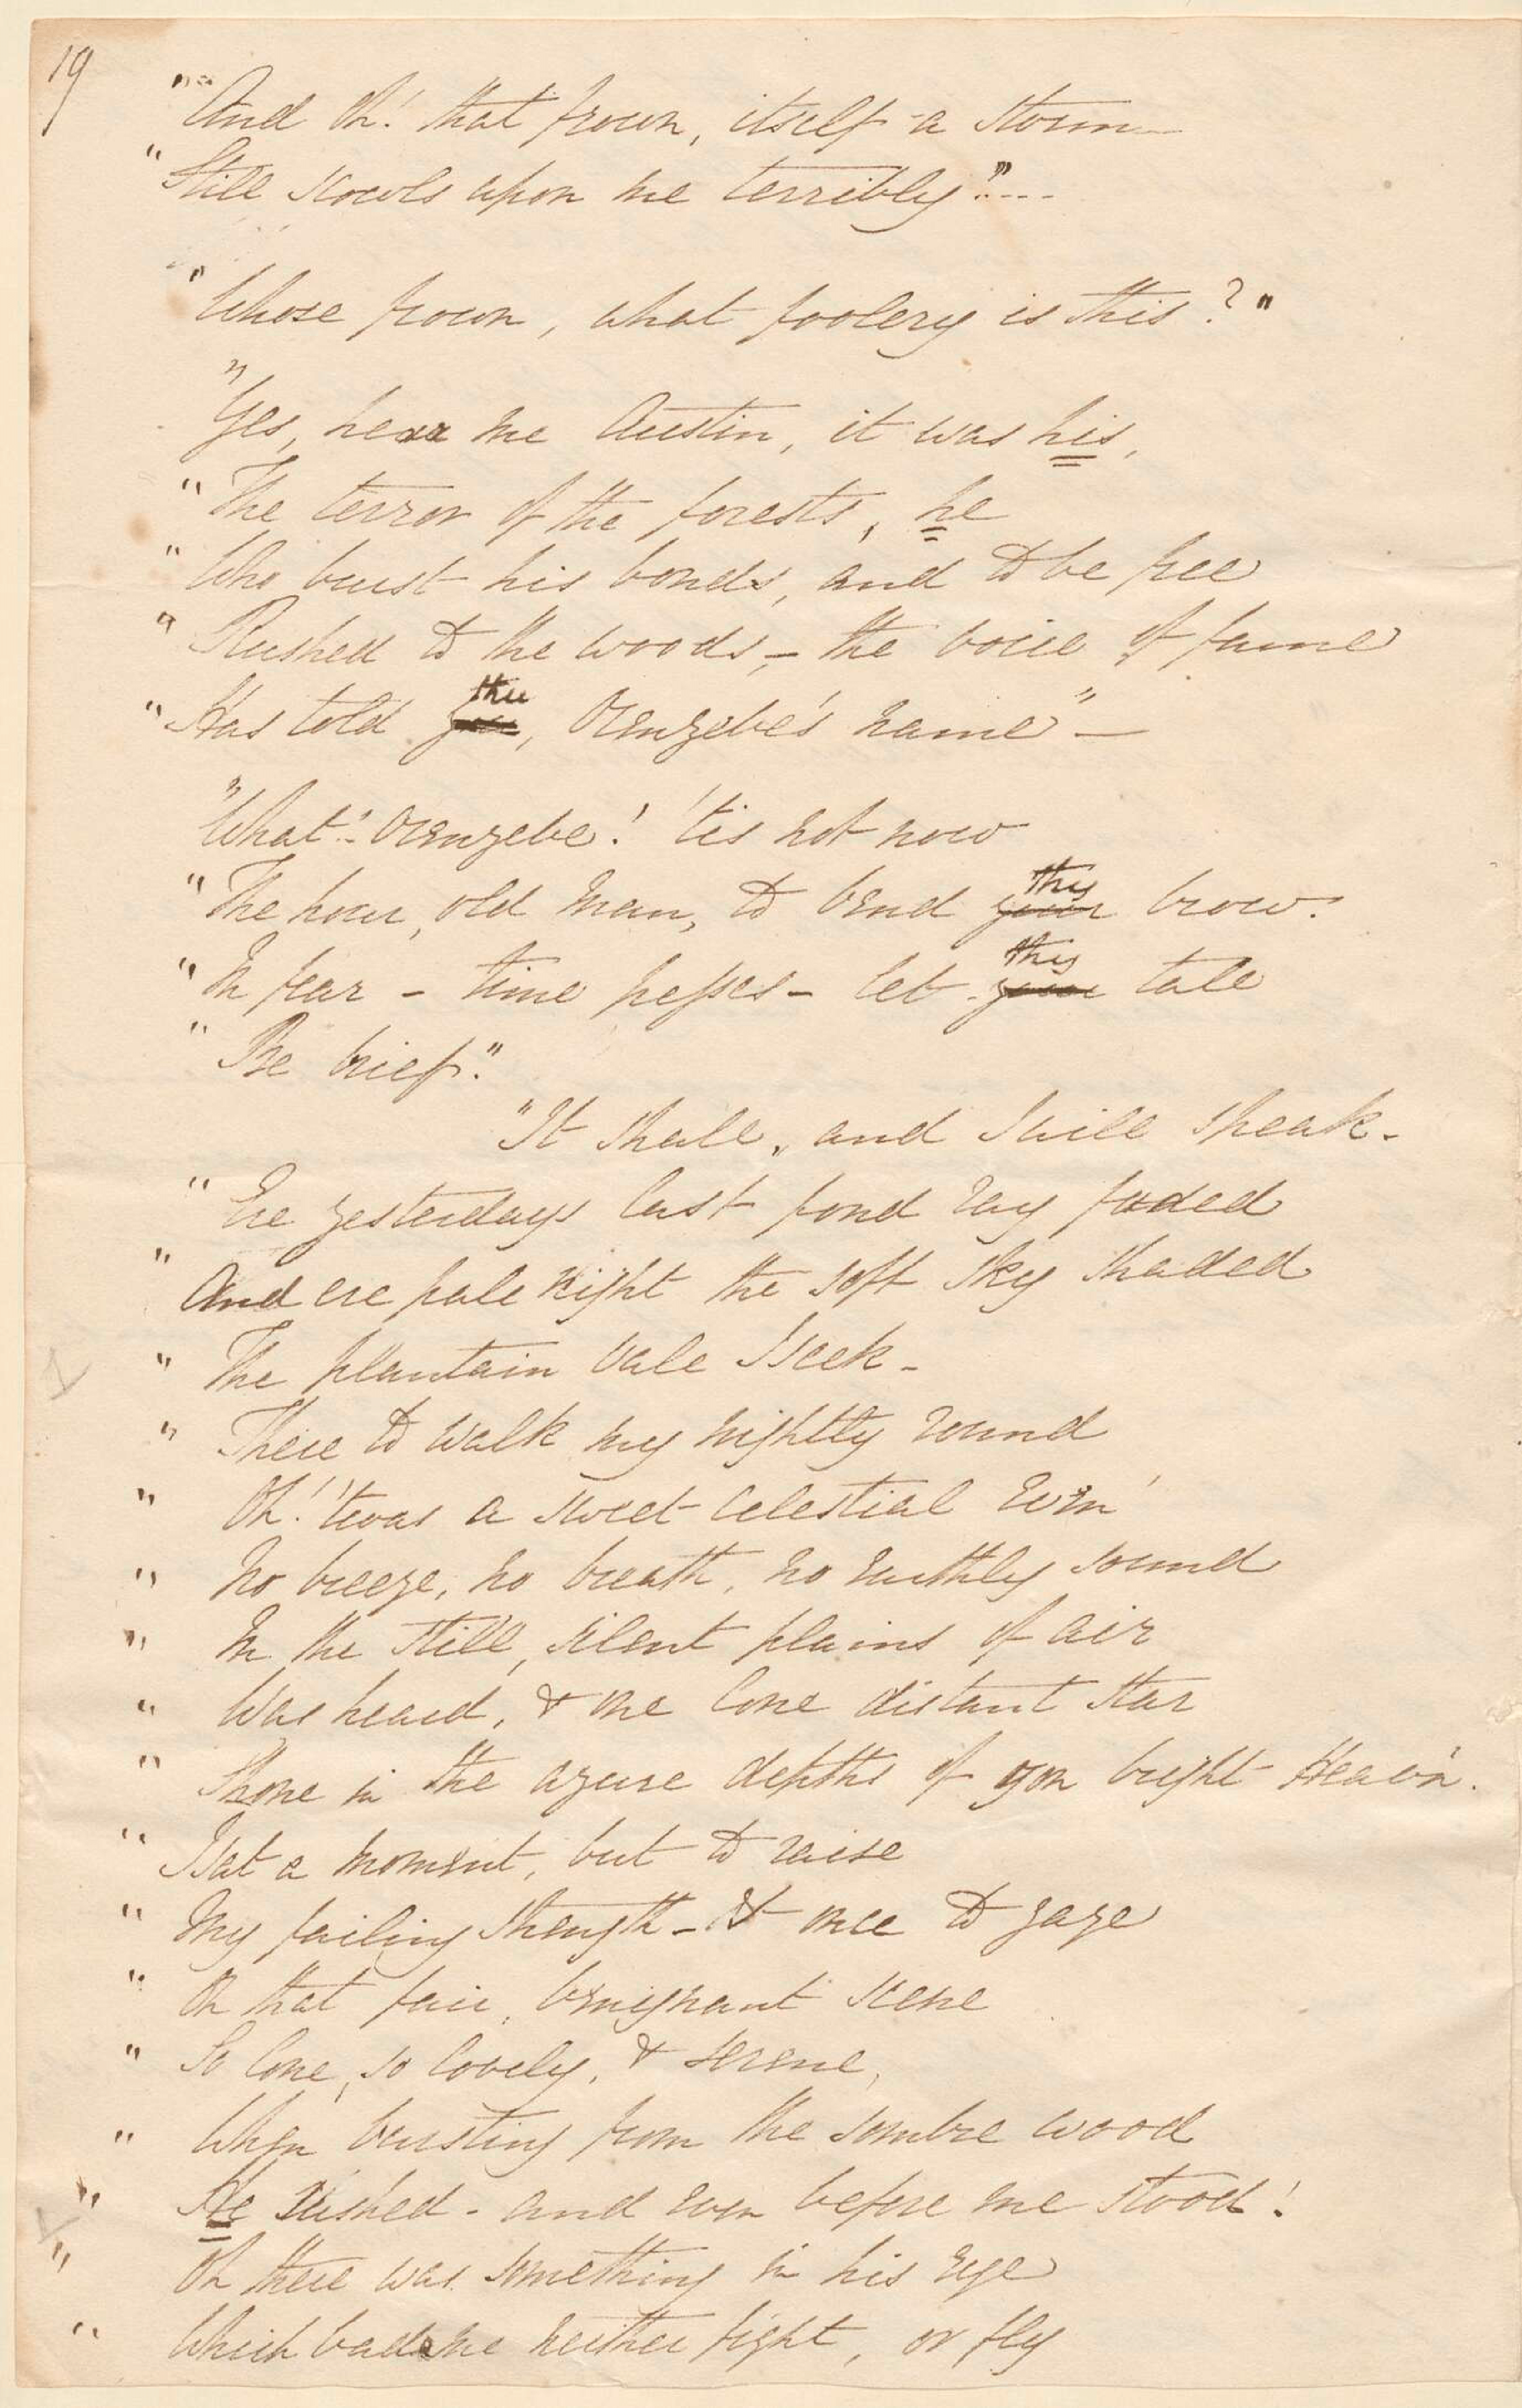 19
"And Oh! that frown, itself a storm
"Still scowls upon me terribly"....
"Whose frown, what foolery is this?"
"Yes, hear me Austin, it was his,
"The terror of the forests, he
"Who burst his bonds, and to be free
"Rushed to the woods,- the voice of fame
"Has told thee, Orenzebe's name"-
"What! Orenzebe! 'tis not now
"The hour, old man, to bend thy brow.
"In fear - time presses - let thy tale
"Be brief."
"It shall, and I will speak.
"Ere yesterdays last fond ray faded
"And ere pale Night the soft sky shaded
"The plantain vale I seek-
"There to walk my nightly round
"Oh! 'twas a sweet celestial Even'
"No breeze, no breath, no earthly sound
"In the still, silent plains of air
"Was heard, & one lone distant star
"Shone in the azure depths of yon bright Heav'n.
"I sat a moment, but to raise
"My failing strength - & once to gaze
"On that fair, benignant scene
"So lone, so lovely, & serene,
"When bursting from the sombre wood
"He rushed - and even before me stood!
"Oh there was something in his eye
"Which bade me neither fight, or fly